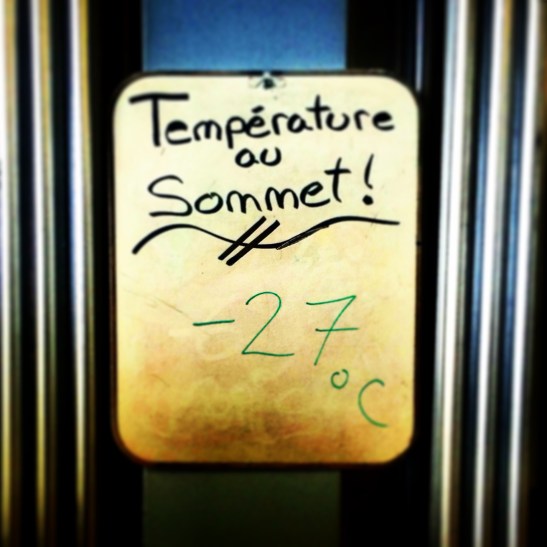 Température
au
Sommet!
-27
°C